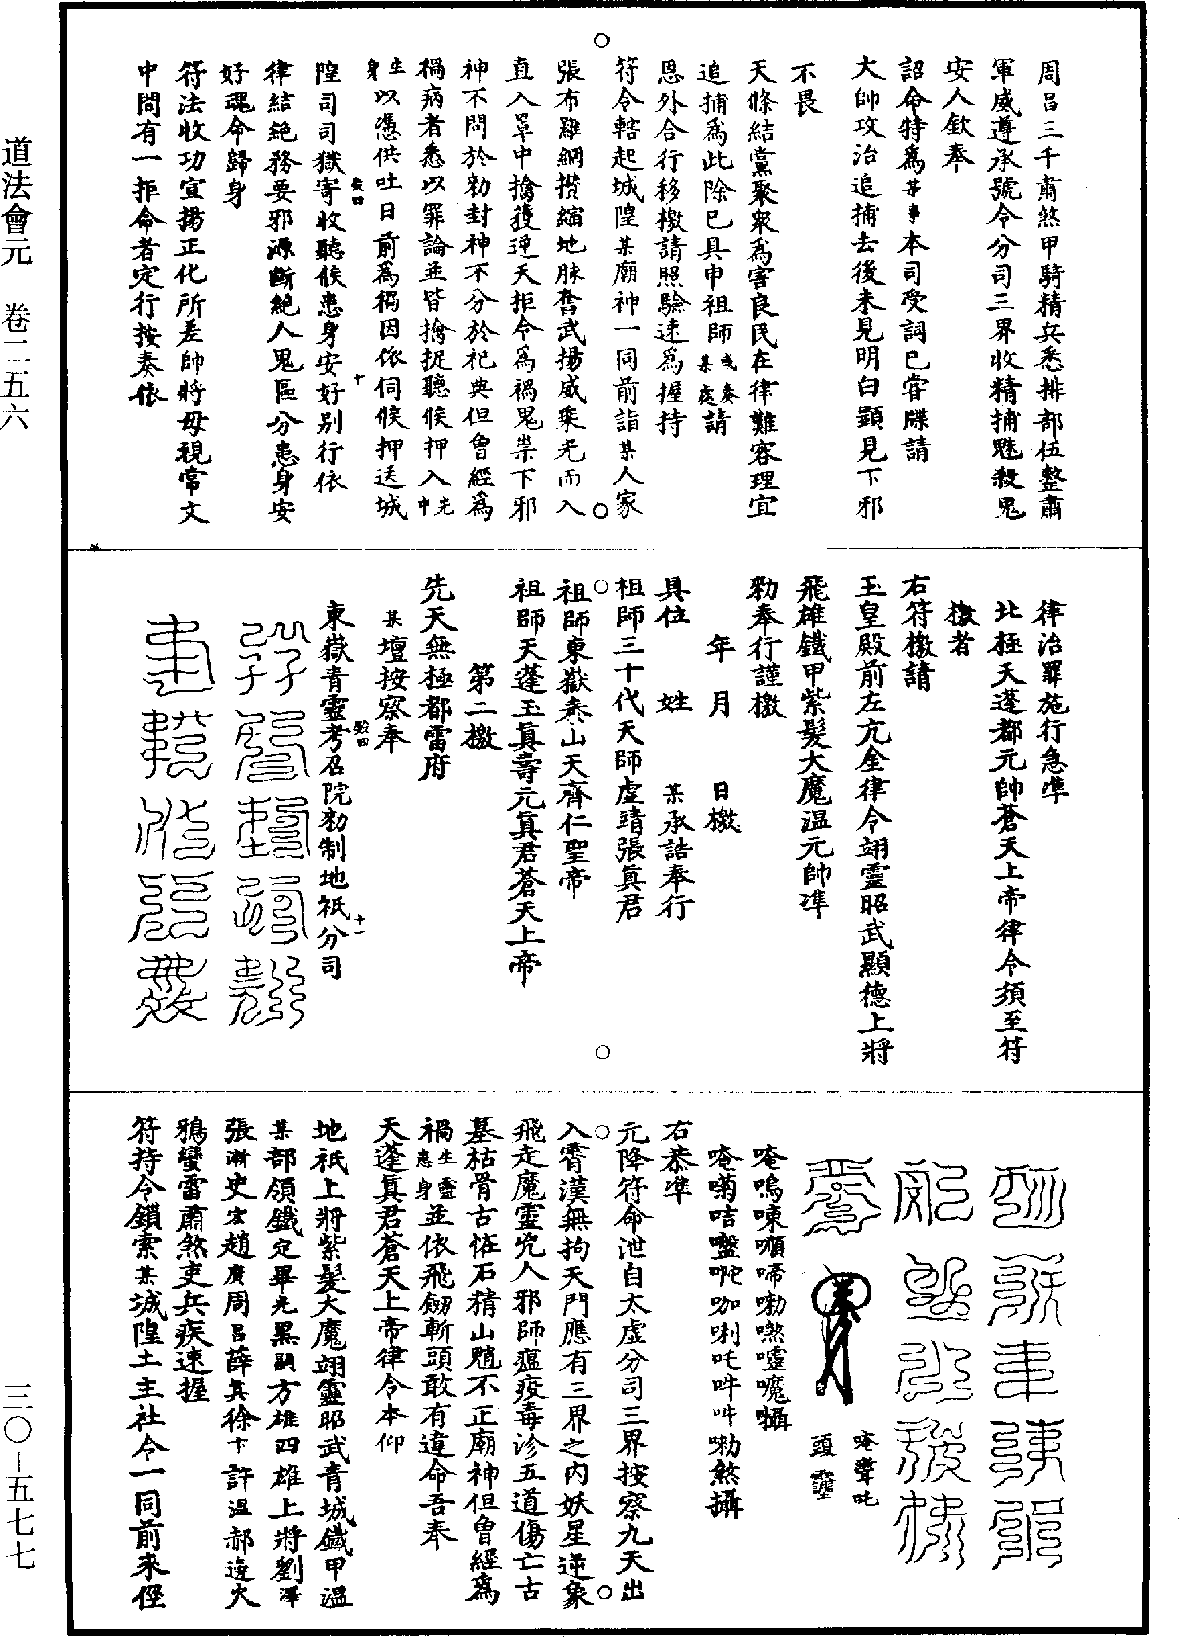 道法會元 卷二五六
三〇－五七七
周呂三千肅煞甲騎精兵悉排部伍整肅
軍威遵承號令分司三界收精捕魅殺鬼
安人欽奉
詔命特為某事本司受詞已嘗牒請
大帥攻治追捕去後未見明白顯見下邪
不畏
天條結黨聚衆為害良民在律難容理宜
追捕為此除已具申祖師或奏某處請
恩外合行移檄請照驗速為握持
符令轄起城隍某廟神一同前詣某人家
張布羅網攢縮地脉奮武揚威乘光而入
直入罩中擒獲逆天拒令為禍鬼祟下邪
神不問於勑封神不分於祀典但曾經為
禍病者悉以罪論並皆擒捉聽候押入先中
生身以憑供吐日前為禍因依伺候押送城
隍司司獄寄收聽候患身安好別行依
律結絕務要邪源斷絕人鬼區分患身安
好魂命歸身
符法收功宣揚正化所差帥將毋視常文
中間有一拒命者定行按奏依
律治罪施行急準
北極天蓬都元帥蒼天上帝律令須至符
檄者
右符檄請
玉皇殿前左亢金律令翊靈昭武顯德上將
飛雄鐵甲紫髮大魔温元帥準
勑奉行謹檄
年 月 日檄
具位 姓 某承誥奉行
祖師三十代天師虛靖張真君
祖師東嶽泰山天齊仁聖帝
祖師天蓬玉真壽元真君蒼天上帝
第二檄
先天無極都雷府
某壇按察奉
東嶽青靈考召院勑制地祇分司
唵聲吒
唵嗚㖦嚬啼嘞㗭嘘嚰囁
唵㘜咭𡄣㖠咖唎吒吽吽嘞煞攝
右恭準
元降符命泄自太虛分司三界按察九天出
入霄漢無拘天門應有三界之内妖星逆象
飛走魔靈咒人邪師瘟疫毒診五道傷亡古
墓枯骨古怪石精山魈不正廟神但曾經為
禍生靈患身並依飛劒斬頭敢有違命吾奉
天蓬真君蒼天上帝律令本仰
地祇上將紫髮大魔翊靈昭武青城鐵甲温
某部領鐵定畢光黑嗣方雄四雄上將劉澤
張漸史宏趙廣周呂薛其徐卞許温郝邊火
鴉蠻雷肅煞吏兵疾速握
符持令鎖索某城隍土主社令一同前來徑